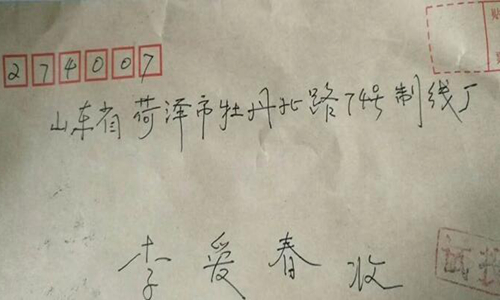 274007
山东省荷泽市牡丹北路74号制线厂
李爱春收